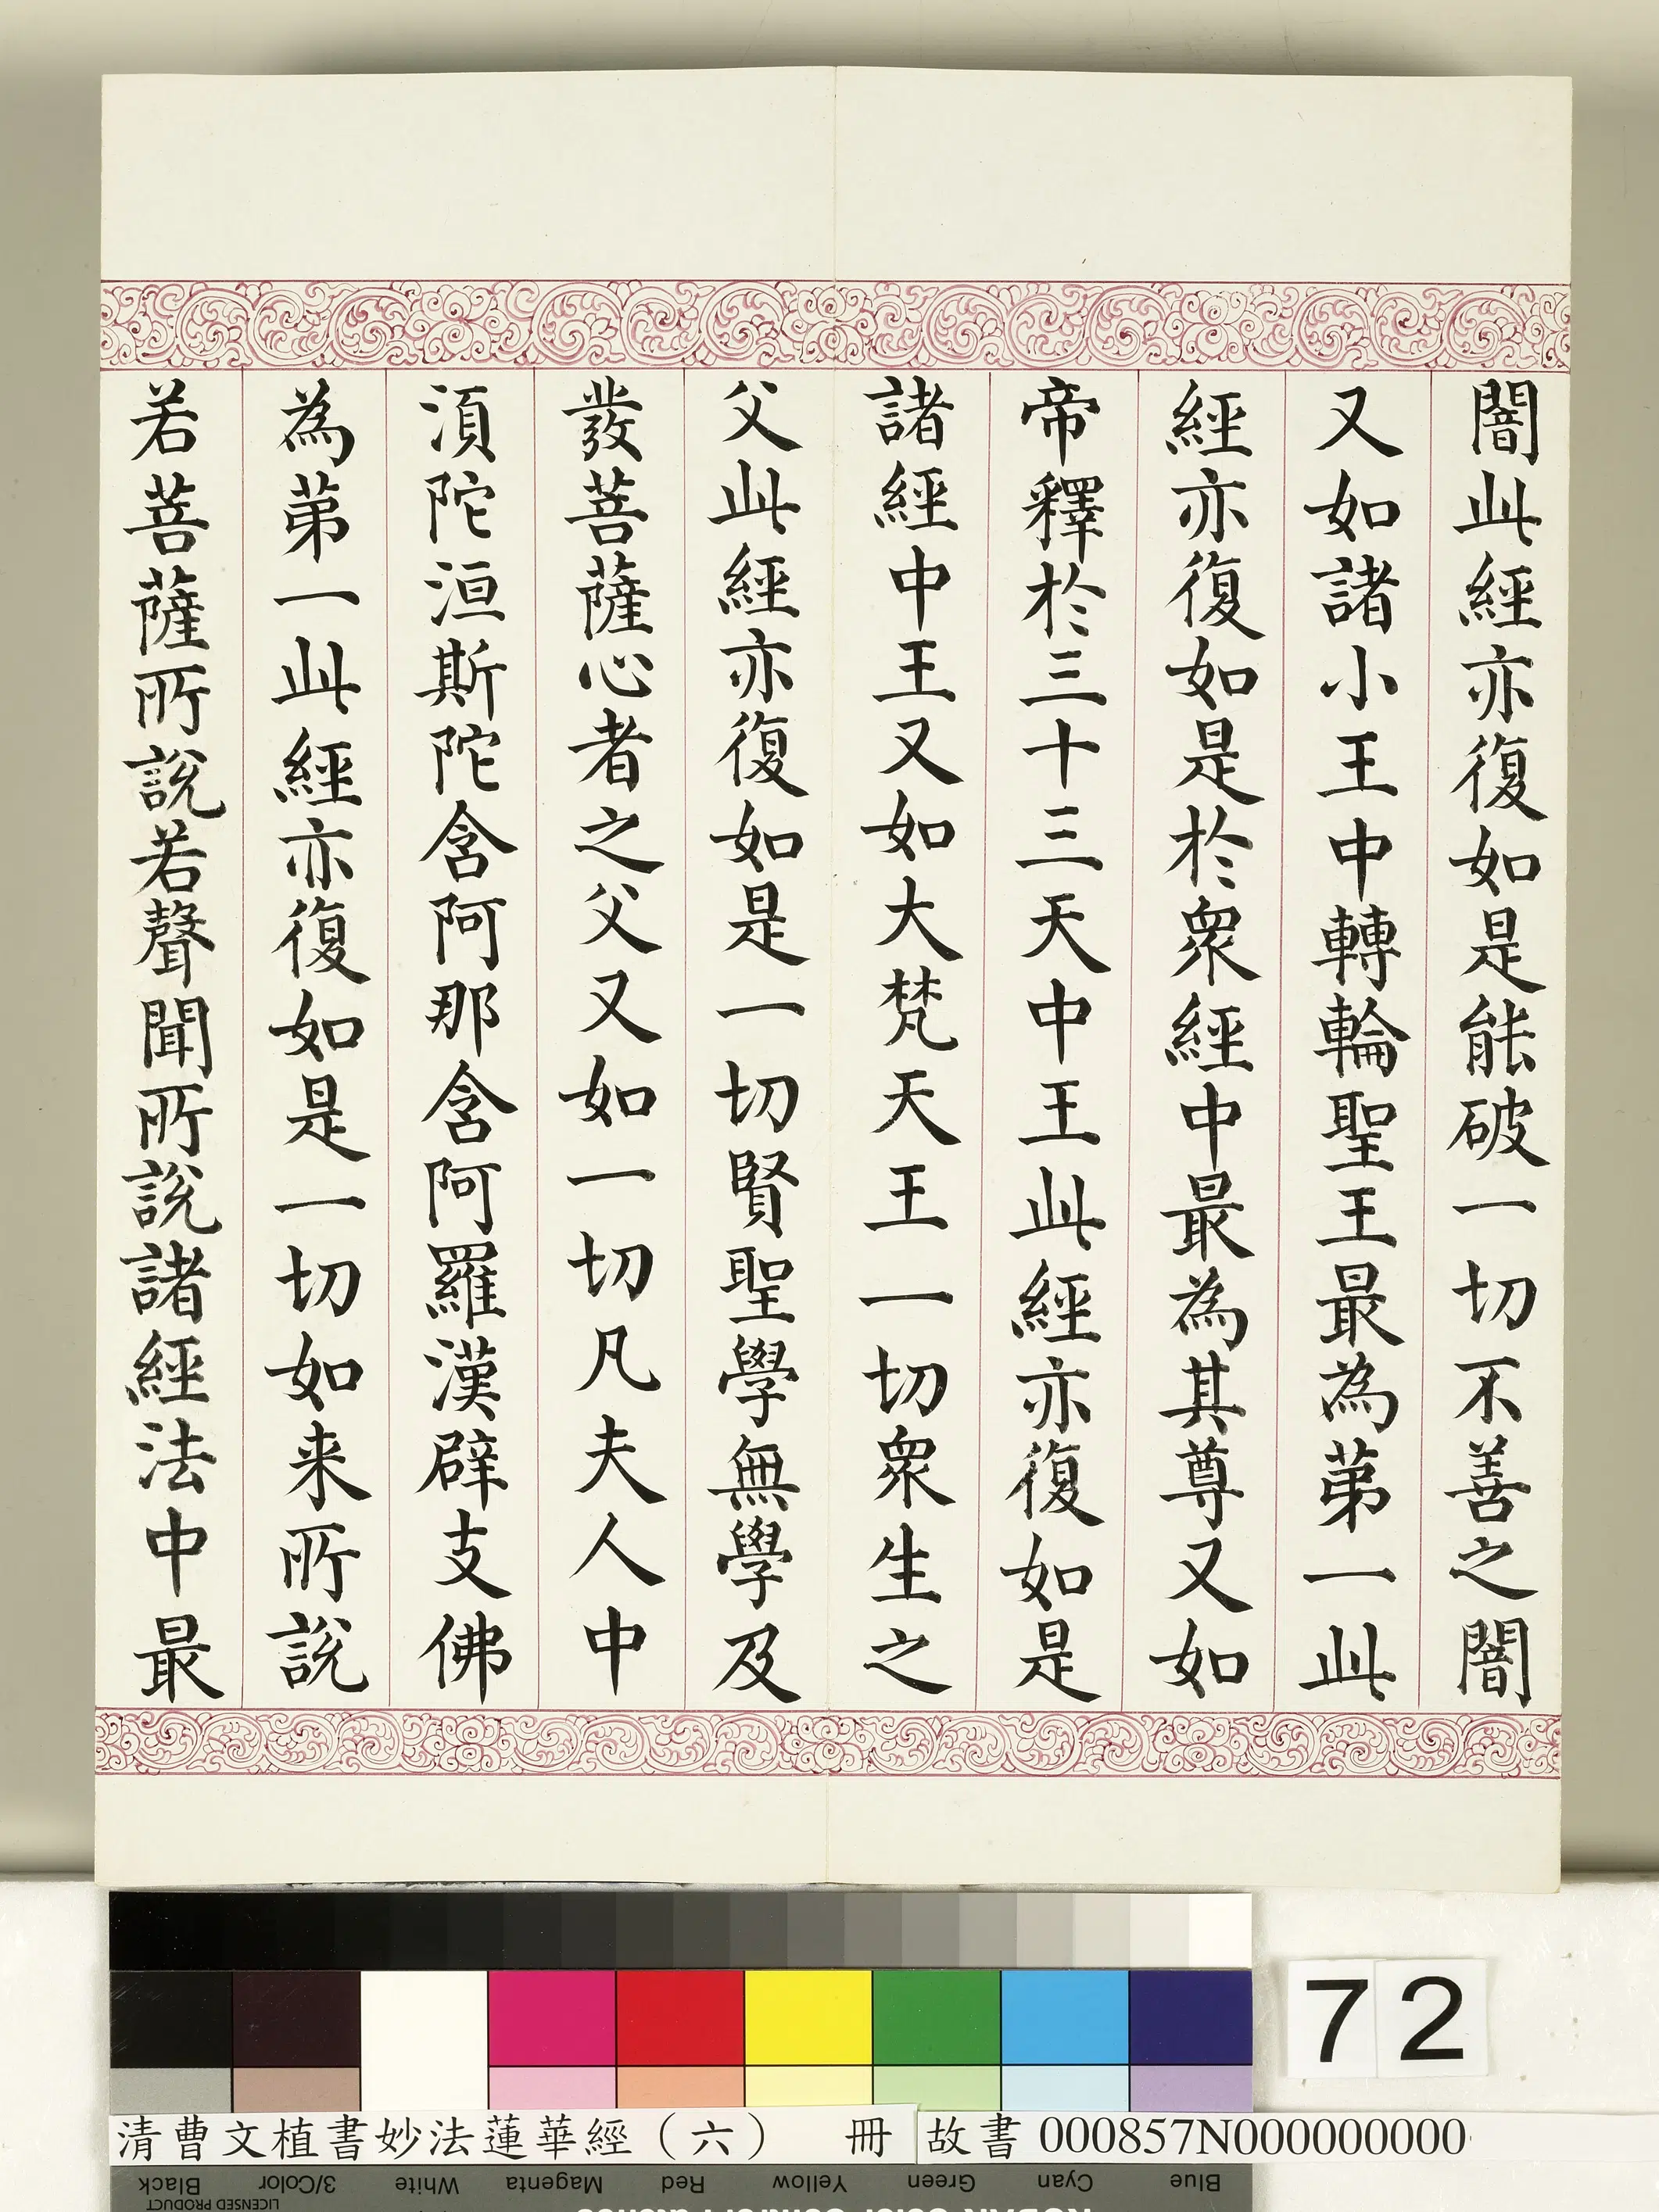 闇此經亦復如是能破一切不善之闇
又如諸小王中轉輪聖王最為苐一此
經亦復如是於衆經中最為其尊又如
帝釋於三十三天中王此經亦復如是
諸經中王又如大梵天王一切衆生之
父此經亦復如是一切賢聖學無學及
發菩薩心者之父又如一切凡夫人中
湏陀洹斯陀含阿那含阿羅漢辟支佛
為苐一此經亦復如是一切如来所說
若菩薩所說若聲聞所說諸經法中最
72
清曹文植書妙法蓮華經（六） 冊
故書 000857N000000000
Black 3/Color White Magenta Red Yellow Green Cyan Blue
LICENSED PRODUCT